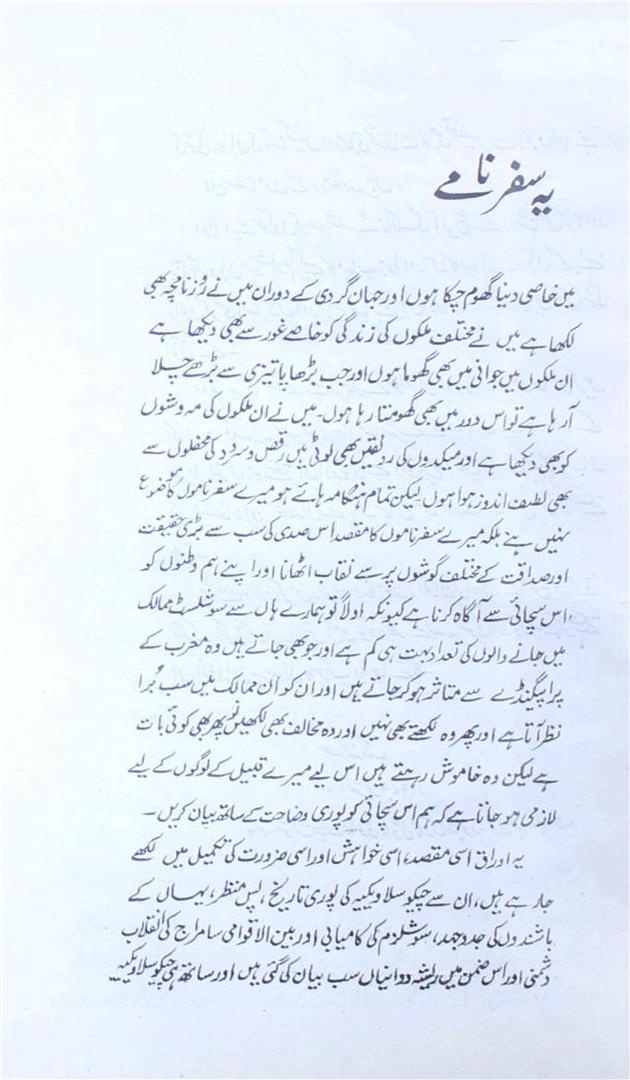 یہ سفر نامے
میں خاصی دنیا گھوم چکا ہوں اور جہان گردی کے دوران میں نے روزنامچہ بھی
لکھا ہے میں نے مختلف ملکوں کی زندگی کو خاصے غور سے بھی دیکھا ہے
ان ملکوں میں جوانی میں بھی گھوما ہوں اور جب بڑھاپا تیزی سے بڑھے چلا
آ رہا ہے تو اس دور میں بھی گھومتا رہا ہوں۔ میں نے ان ملکوں کی مہ وشوں
کو بھی دیکھا ہے اور میکدوں کی رونقیں بھی لوٹی ہیں رقص و سرود کی محفلوں سے
بھی لطف اندوز ہوا ہوں۔ لیکن تمام ہنگامہ ہائے ہو میرے سفرناموں کا موضوع
نہیں بنے بلکہ میرے سفرناموں کا مقصد اس صدی کی سب سے بڑی حقیقت
اور صداقت کے مختلف گوشوں پر سے نقاب اٹھانا اور اپنے ہم وطنوں کو
اس سچائی سے آگاہ کرنا ہے کیونکہ اولاً تو ہمارے ہاں سے سوشلسٹ ممالک
میں جانے والوں کی تعداد بہت ہی کم ہے اور جو بھی جاتے ہیں وہ مغرب کے
پراپیگنڈے سے متاثر ہو کر جاتے ہیں اور ان کو ان ممالک میں سب بُرا
نظر آتا ہے اور پھر وہ لکھتے بھی نہیں اور وہ مخالف بھی لکھیں تو پھر بھی کوئی بات
ہے لیکن وہ خاموش رہتے ہیں اس لیے میرے قبیل کے لوگوں کے لیے
لازمی ہو جاتا ہے کہ ہم اس سچائی کو پوری وضاحت کے ساتھ بیان کریں۔
یہ اوراق اسی مقصد، اسی خواہش اور اسی ضرورت کی تکمیل میں لکھے
جا رہے ہیں، ان سے چیکوسلاویکیہ کی پوری تاریخ، پس منظر، یہاں کے
باشندوں کی جدوجہد، سوشلزم کی کامیابی اور بین الاقوامی سامراج کی انقلاب
دشمنی اور اس ضمن میں ریشہ دوانیاں سب بیان کی گئی ہیں اور ساتھ ہی چیکوسلاویکیہ